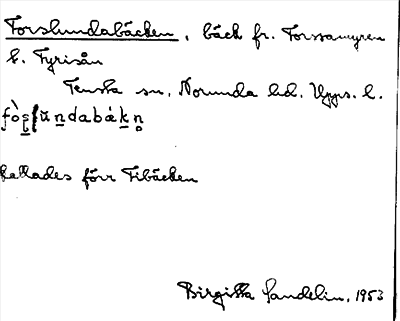 Forslundabäcken, bäck fr. Forssamyren
t. Fyrisån
Tensta sn, Norunda hd. Upps. l.
kallades förr Fibäcken
Birgitta Sandelin, 1953